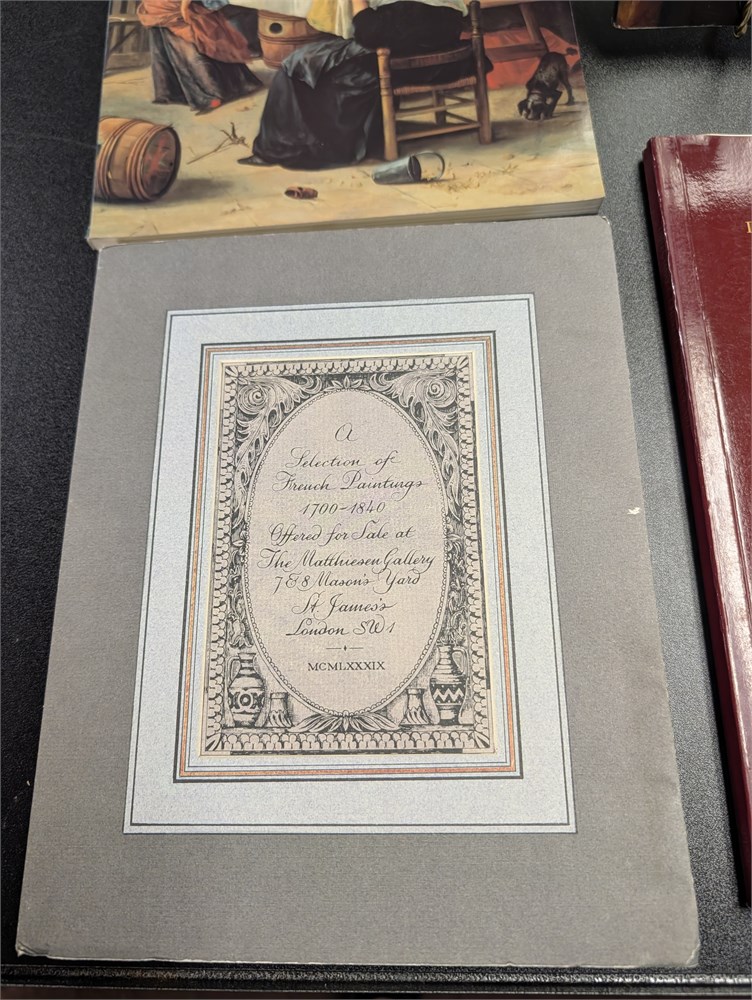 A
Selection of
French Paintings
1700-1840
Offered for Sale at
The Matthiesen Gallery
7 & 8 Mason's Yard
St. James's
London SW1
MCMLXXXIX